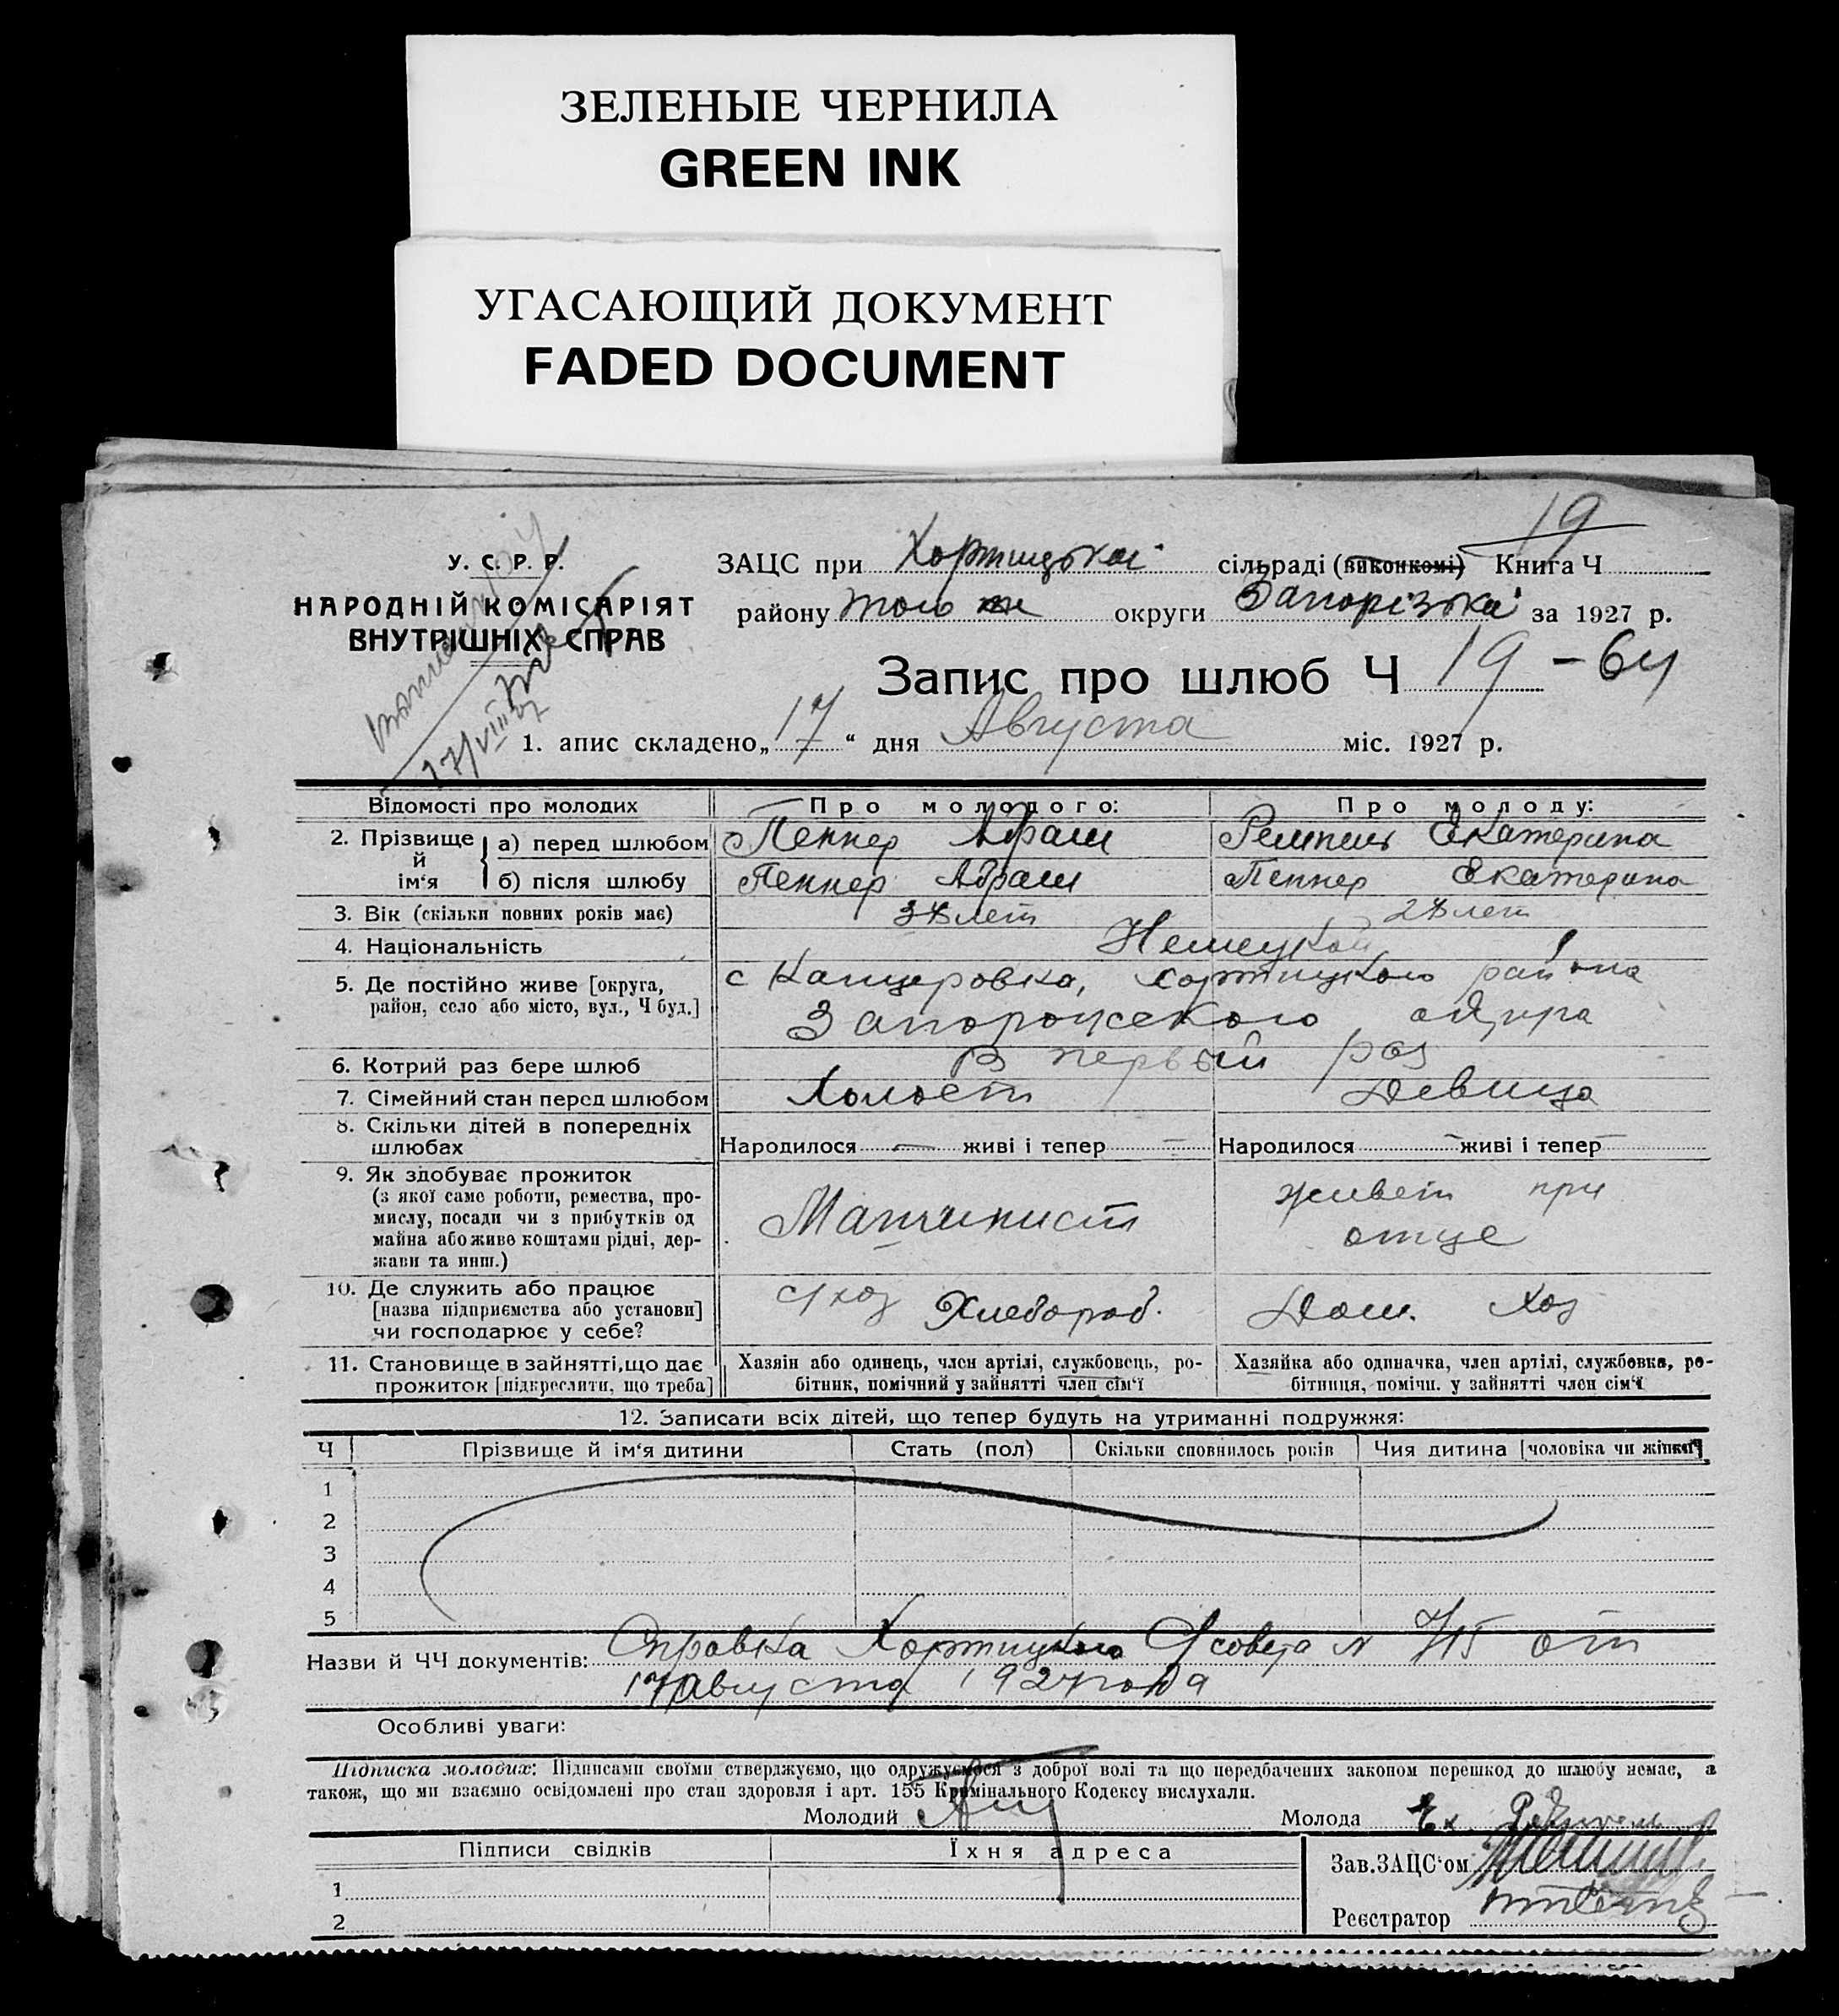 ЗЕЛЕНЫЕ ЧЕРНИЛА
GREEN INK
УГАСАЮЩИЙ ДОКУМЕНТ
FADED DOCUMENT
19
У. С. Р. Р.
НАРОДНІЙ КОМІСАРІЯТ
ВНУТРІШНІХ СПРАВ
17/VIII 27
ЗАЦС при Хортицькоі сільраді (виконкомі) Книга Ч
району того же округи Запорізькоі за 1927 р.
Запис про шлюб Ч 19 - 64
1. апис складено „17“ дня Августа міс. 1927 р.
Відомості про молодих Про молодого: Про молоду:
2. Прізвище й ім‘я а) перед шлюбом Пеннер Абрам Ремпель Екатерина
б) після шлюбу Пеннер Абрам Пеннер Екатерина
3. Вік (скільки повних років має) лет лет
4. Національність Немецкой
5. Де постійно живе [округа, с Канцеровка, Хортицкого района
район, село або місто, вул., Ч буд.] Запорожского округа
6. Котрий раз бере шлюб В первый раз
7. Сімейний стан перед шлюбом Холост Девица
8. Скільки дітей в попередніх
шлюбах Народилося — живі і тепер — Народилося — живі і тепер —
9. Як здобуває прожиток
(з якої саме роботи, ремества, про-
мислу, посади чи з прибутків од
майна або живе коштами рідні, дер-
жави та инш.) Машинист живет при
отце
10. Де служить або працює
[назва підприємства або установи]
чи господарює у себе? с/хоз Хлебороб. Дом. Хоз
11. Становище в зайнятті, що дає Хазяін або одинець, член артілі, службовець, ро- Хазяйка або одиначка, член артілі, службовка, ро-
прожиток [підкреслити, що треба] бітник, помічний у зайнятті член сім‘ї бітниця, помічн. у зайнятті член сім‘ї
12. Записати всіх дітей, що тепер будуть на утриманні подружжя:
Ч Прізвище й ім‘я дитини Стать (пол) Скільки сповнилось років Чия дитина [чоловіка чи жінки]
1
2
3
4
5
Назви й ЧЧ документів: Справка Хортицкого С/совета N 715 от
17 августа 1927 года
Особливі уваги:
Підписка молодих: Підписами своїми стверджуємо, що одружуємося з доброї волі та що передбачених законом перешкод до шлюбу немає, а
також, що ми взаємно освідомлені про стан здоровля і арт. 155 Кримінального Кодексу вислухали.
Молодий Молода Ек.
Підписи свідків Їхня адреса Зав. ЗАЦС‘ом
1
2 Реєстратор